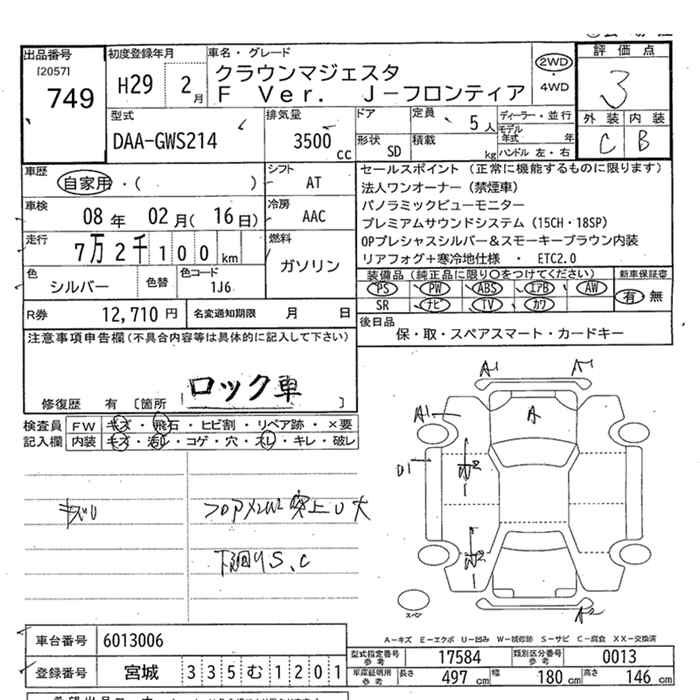 出品番号
[2057]
749
初度登録年月
H29 2月
車名・グレード
クラウンマジェスタ
F Ver. J-フロンティア
2WD
・
4WD
評価点
3
外装 内装
C B
型式
DAA-GWS214
排気量
3500 cc
ドア
定員
5人
形状
SD
積載
kg
ディーラー・並行
モデル年式 年
ハンドル 左・右
車歴
自家用・( )
シフト
AT
車検
08年 02月( 16日)
冷房
AAC
走行
7万2千100 km
燃料
ガソリン
色
シルバー
色替
色コード
1J6
R券
12,710円
名変通知期限 月 日
セールスポイント (正常に機能するものに限ります)
法人ワンオーナー(禁煙車)
パノラミックビューモニター
プレミアムサウンドシステム(15CH・18SP)
OPプレシャスシルバー&スモーキーブラウン内装
リアフォグ+寒冷地仕様 ・ ETC2.0
装備品(純正品に限り○をつけてください)
新車保証書
PS PW ABS エアB AW
SR ナビ TV カワ
有・無
後日品
保・取・スペアスマート・カードキー
注意事項申告欄(不具合内容等は具体的に記入して下さい)
ロック車
修復歴 有 〔箇所
検査員記入欄
FW キズ・飛石・ヒビ割・リペア跡・×要
内装 キズ・汚レ・コゲ・穴・スレ・キレ・破レ
フロアメンバ突上U大
下廻りS、C
A1
A1
A1
A
U1
A2
スペア
A-キズ E-エクボ U-凹み W-補修跡 S-サビ C-腐食 XX-交換済
車台番号
6013006
登録番号
宮城 335む1201
型式指定番号
参考
17584
類別区分番号
参考
0013
車庫証明用
参考
長さ
497 cm
幅
180 cm
高さ
146 cm